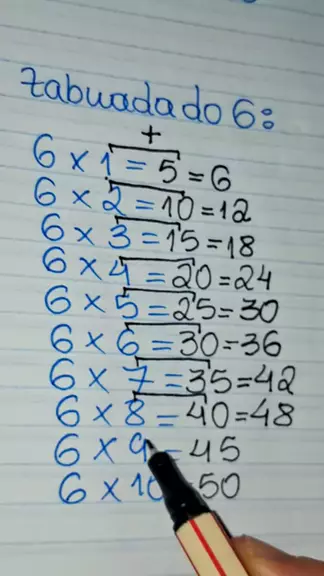 Tabuada do 6:
+
6 x 1 = 5 = 6
6 x 2 = 10 = 12
6 x 3 = 15 = 18
6 x 4 = 20 = 24
6 x 5 = 25 = 30
6 x 6 = 30 = 36
6 x 7 = 35 = 42
6 x 8 = 40 = 48
6 x 9 = 45
6 x 10 50